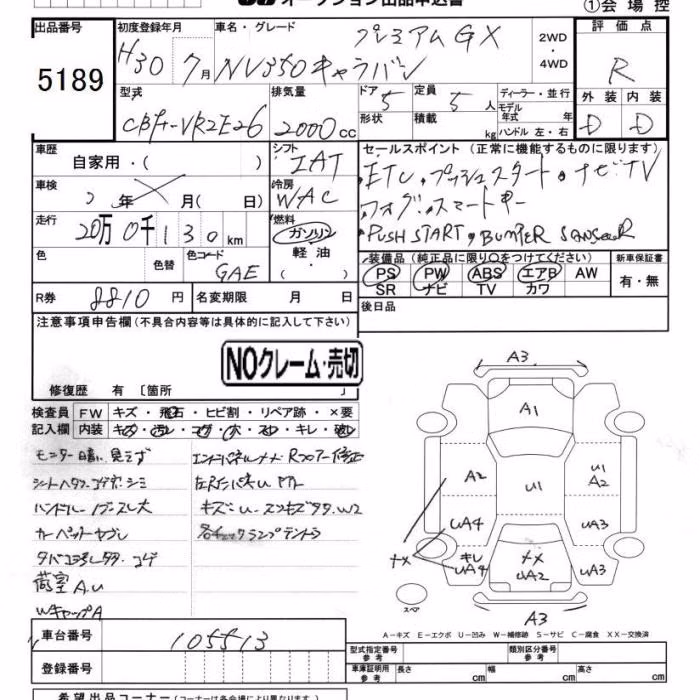 オークション出品申込書
①会場控
出品番号 初度登録年月 車名・グレード 評価点
プレミアムGX
5189 H30 7月 NV350キャラバン 2WD・4WD R
型式 排気量 ドア 定員 ディーラー・並行 外装 内装
CBF-VR2E26 2000cc 5 5人 モデル年式 年 D D
形状 積載 kg ハンドル 左・右
車歴 自家用・( ) シフト IAT セールスポイント (正常に機能するものに限ります)
車検 年 月( 日) 冷房 WAC ・ETC・プッシュスタート・ナビTV
走行 20万0千130km 燃料 ガソリン・軽油・( ) ・フォグ・スマートキー
・PUSH START, BUMPER SENSOR
色 色替 色コード GAE 装備品 (純正品に限り〇をつけてください) 新車保証書
PS PW ABS エアB AW 有・無
SR ナビ TV カワ
R券 8810円 名変期限 月 日 後日品
注意事項申告欄(不具合内容等は具体的に記入して下さい)
NOクレーム・売切
修復歴 有〔箇所 〕
検査員記入欄 FW キズ・飛石・ヒビ割・リペア跡・×要
内装 キズ・汚レ・コゲ・穴・スレ・キレ・破レ
モニター暗い見えず
ハンドルノブスレ大
カーペットヤブレ
荷室A.U
WキャップA
A3
A1
A2 U1 U1 A2
UA4 UA3
ナメ キレ UA4 ナメ UA2 UA3
スペア A3
A-キズ E-エクボ U-凹み W-補修跡 S-サビ C-腐食 XX-交換済
車台番号 105513
登録番号
型式指定番号 参考 類別区分番号 参考
車庫証明用 参考 長さ cm 幅 cm 高さ cm
希望出品コーナー (コーナーは各会場により異なります)